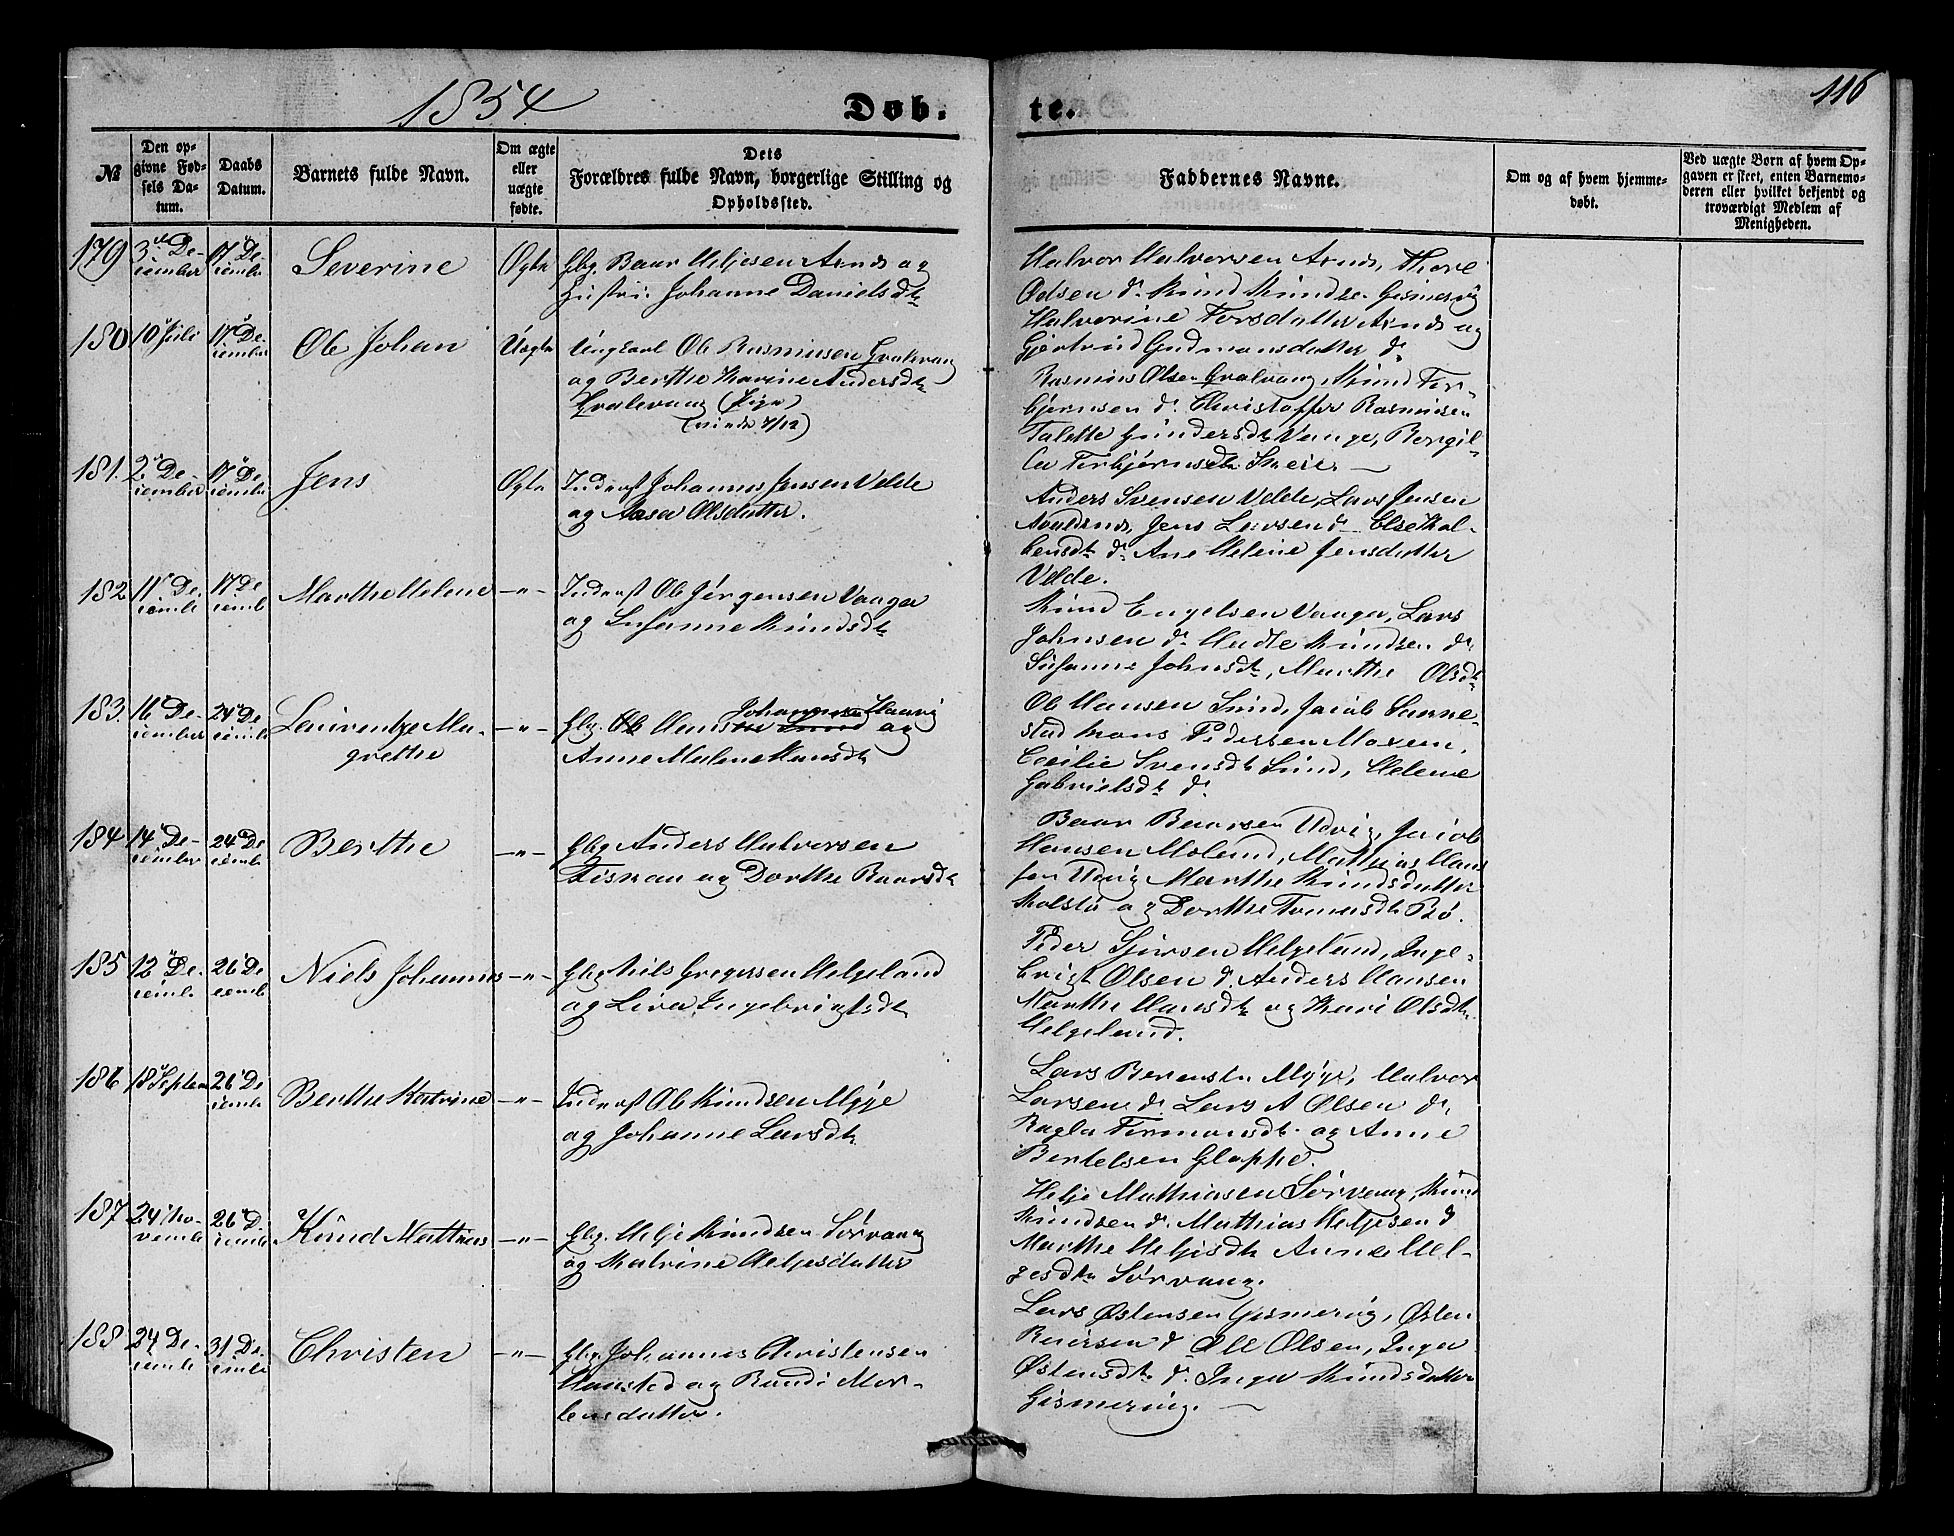 1854
Døb.
te.
116
№
Den op-
givne Fød-
sels Da-
tum.
Daabs
Datum.
Barnets fulde Navn.
Om ægte
eller
uægte
fødte.
Dets
Forældres fulde Navn, borgerlige Stilling og
Opholdssted.
Faddernes Navne.
Om og af hvem hjemme-
døbt.
Ved uægte Born af hvem Op-
gaven er skeet, enten Barnemo-
deren eller hvilket bekjendt og
troværdigt Medlem af
Menigheden.
179
3 De-
cember
17 De-
cember
Severine
Ægte
Gbr. Baar Heljesen Arnds og
Hustru Johanne Danielsdt
Halvor Halvorsen Arnds, Thore
Odsen do Knud Knudsen Gismervig
Halverine Torsdatter Arnds og
Gjertrud Gudmansdatter do
180
10 Juli
17 De-
cember
Ole Johan
Uægte
Ungkarl Ole Rasmusen Gralevang
og Berthe Karine Andersdt
Gralevang (Pige)
Rasmus Olsen Gralvang, Knud Tor-
bjørnsen do Christoffer Rasmusen
Talette Gundersdt Vange, Bergil-
le Torbjørnsdt Skeie.
181.
2 De-
cember
17 De-
cember
Jens
Ægte
Inderst Johannes Jensen Velde
og Aasa Olsdatter.
Anders Svensen Velde, Lars Jensen
Jens Larsen do Else Kol-
bensdt do Ane Helene Jensdatter
Velde.
182
11 De-
cembr
17 De
cembr
Marthe Helene
-"-
Inderst Ole Jørgensen Vaage
og Susanne Knudsdt
Knud Engelsen Vaage, Lars
Johnsen do Hadle Knudsen do
Susanne Johnsdt, Marthe Olsdt
183.
16 De-
cember
24 De-
cembr
Laurentze Ma-
grethe
-"-
Gbr. Ole Hans Johannes Haavig og
Anne Malene Hansdt
Ole Hansen Sund, Jacob Sørne-
stad Hans Pedersen Moxem,
Cecilie Svensdt Sund, Helene
Gabrielsdt do
184
14 De-
cember
24 De
cembr
Berthe
-"-
Gbr Anders Halvorsen
Fiskaa og Dorthe Baarsdt
Baar Baarsen Udvig, Jacob
Hansen Moland, Mathias Hans
sen Udvig Marthe Knudsdatter
Kolstø og Dorthe Tomasdt Bø.
185
12 De-
cembr
26 De
cembr
Niels Johannes
-"-
Gbr Nils Gregersen Helgeland
og Liva Ingebrigtsdt
Peder Sjursen Helgeland, Inge-
brigt Olsen do Anders Hansen
Marthe Hansdt og Kari Olsdt
Helgeland.
186
18 Septem
26 De
cembr
Berthe Katrine
-"-
Inderst Ole Knudsen Myge
og Johanne Larsdt
Lars Berentsen Myge, Halvor
Larsen do Lars A Olsen do
Ragla Tormansdt og Anne
Bertelsen Glophe.
187
24 No-
vembr
26 De
cembr
Knud Mathias
-"-
Gbr. Helje Knudsen Sørvaag
og Katrine Heljesdatter
Helje Mathiasen Sørvaag, Knud
Knudsen do Mathias Heljesen do
Marthe Heljesdt Anne Hel-
gesdtr Sørvaag.
188
24 De-
cembr
31 De-
cembr
Christen
-"-
Gbr Johannes Christensen
Hansted og Randi Mor-
tensdatter.
Lars Østensen Gismervig, Østen
Reiersen do Ole Olsen, Inger
Østensdt do Inger Knudsdatter
Gismervig.